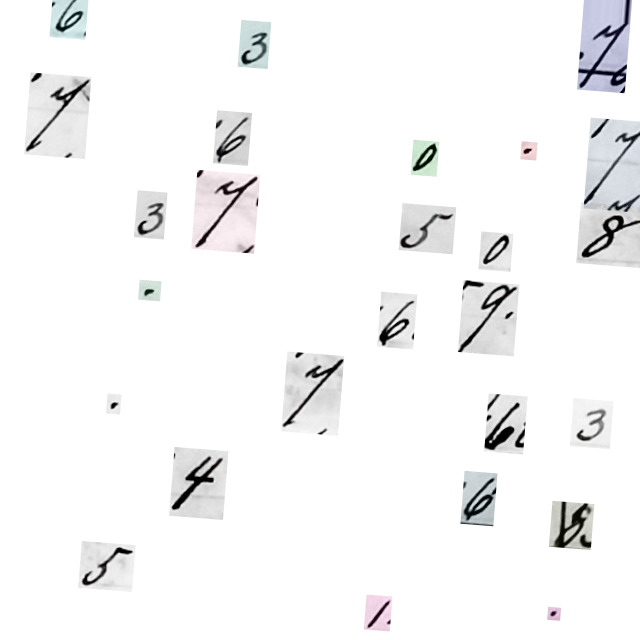 6 3 7
7 6 0 . 7
3 7 5 0 8
. 6 9
. 7 6 3
4 6 8
5 1 .